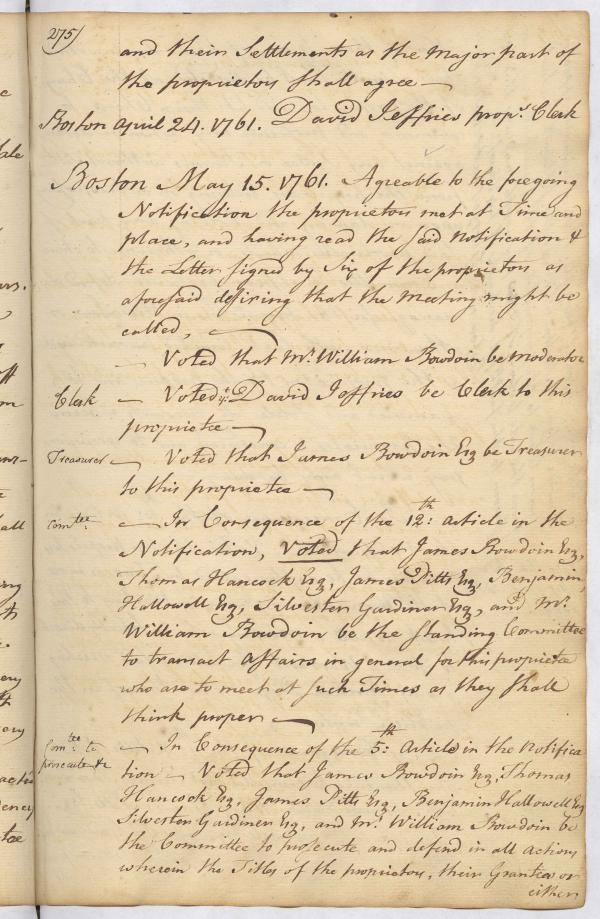 275)
and their Settlements as the Major part of
the proprietors shall agree —
Boston april 24. 1761. David Jeffries propr. Clerk
Boston May 15. 1761. Agreable to the foregoing
Notification the proprietors met at Time and
place, and having read the said notification &
the Letter signed by Six of the proprietors as
aforesaid desiring that the Meeting might be
called, —
— Voted that Mr. William Bowdoin be moderator
Clerk — Voted yt. David Jeffries be Clerk to this
proprietee —
Treasurer — Voted that James Bowdoin Esq be Treasurer
to this proprietee —
comtee: — In Consequence of the 12th: article in the
Notification, Voted that James Bowdoin Esq,
Thomas Hancock Esq, James Pitts Esq, Benjamin
Hallowell Esq, Silvester Gardiner Esq, and Mr.
William Bowdoin be the Standing Committee
to transact affairs in general for this proprietee
who are to meet at such Times as they shall
think proper —
Comtee: to — In Consequence of the 5th: Article in the notifica
prosecute &c tion — Voted that James Bowdoin Esq, Thomas
Hancock Esq, James Pitts Esq, Benjamin Hallowell Esq
Silvester Gardiner Esq, and Mr. William Bowdoin be
the Committee to prosecute and defend in all actions
wherein the Titles of the proprietors, their Grantees or
either